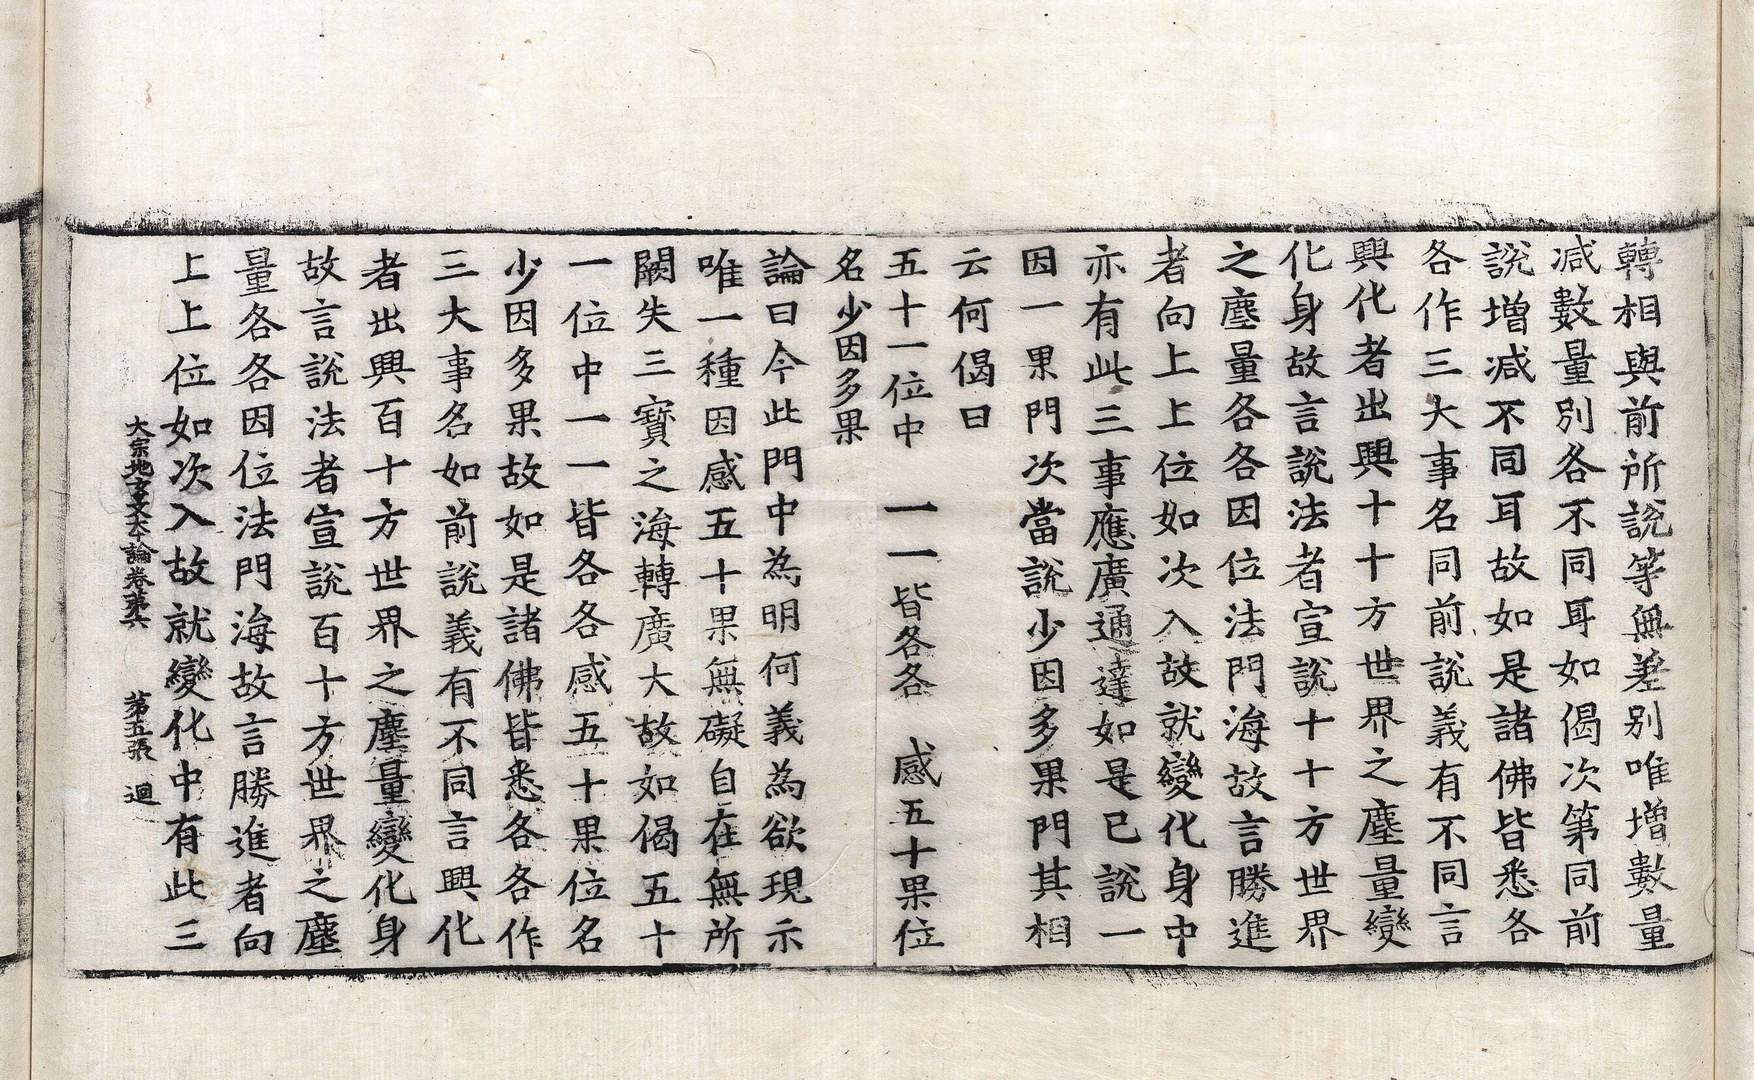 轉相與前所說等無差別唯增數量
減數量別各不同耳如偈次第同前
說增減不同耳故如是諸佛皆悉各
各作三大事名同前說義有不同言
興化者出興十十方世界之塵量變
化身故言說法者宣說十十方世界
之塵量各各因位法門海故言勝進
者向上上位如次入故就變化身中
亦有此三事應廣通達如是已說一
因一果門次當說少因多果門其相
云何偈曰
五十一位中　一一皆各各　感五十果位
名少因多果
論曰今此門中為明何義為欲現示
唯一種因感五十果無礙自在無所
闕失三寶之海轉廣大故如偈五十
一位中一一皆各各感五十果位名
少因多果故如是諸佛皆悉各各作
三大事名如前說義有不同言興化
者出興百十方世界之塵量變化身
故言說法者宣說百十方世界之塵
量各各因位法門海故言勝進者向
上上位如次入故就變化中有此三
大宗地玄文本論卷第六　第五張　迴